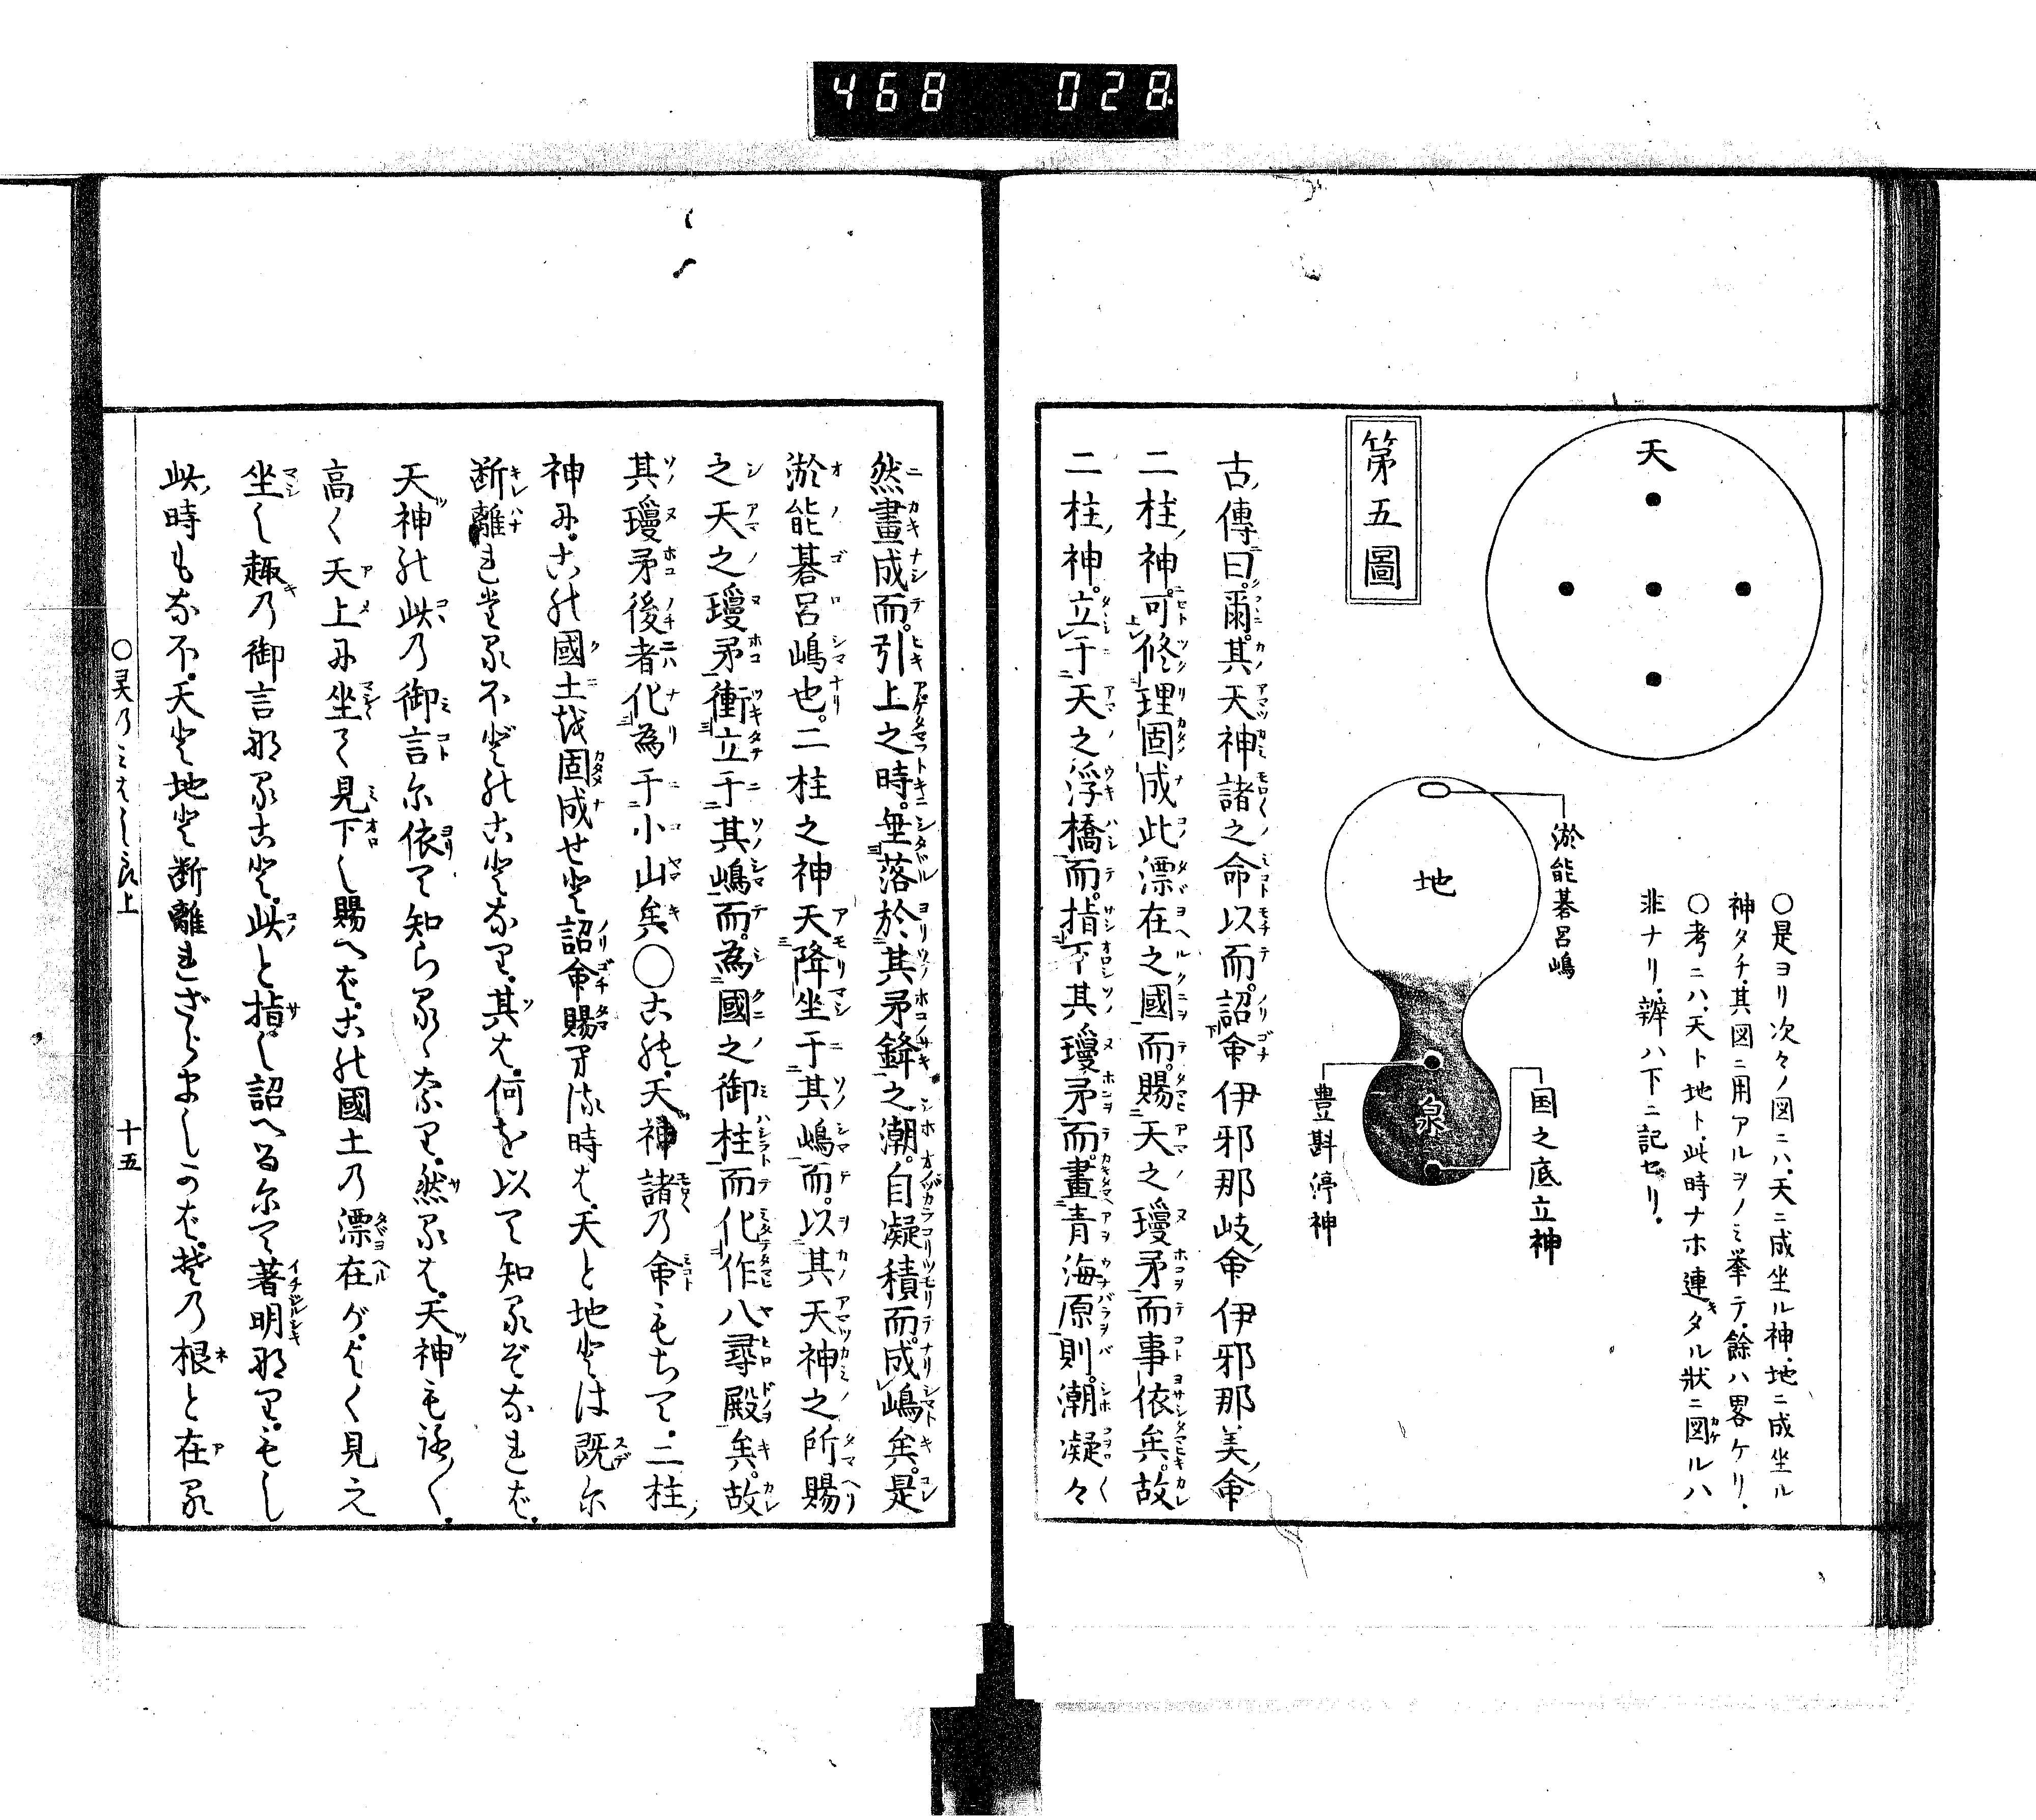 468 028
天
○是ヨリ次々ノ図ニハ、天ニ成坐ル神、地ニ成坐ル
神タチ、其図ニ用アルヲノミ挙テ、餘ハ畧ケリ、
○考ニハ、天ト地ト、此時ナホ連タル状ニ図ルハ
非ナリ、辨ハ下ニ記セリ、
淤能碁呂嶋
地
泉
国之底立神
豊斟渟神
第五圖
古傳曰。爾其天神諸之命以而。詔命伊邪那岐命伊邪那美命
二柱神。可修理固成此漂在之國而。賜天之瓊矛而事依矣。故
二柱神。立于天之浮橋而。指下其瓊矛而。畫青海原則。潮凝々
然畫成而。引上之時。垂落於其矛鋒之潮。自凝積而。成嶋矣。是
淤能碁呂嶋也。二柱之神天降坐于其嶋而。以其天神之所賜
之天之瓊矛衝立于其嶋而。為國之御柱而化作八尋殿矣。故
其瓊矛後者化為于小山矣○古能天神諸乃命もちて。二柱
神尓。古能國土越固成せ登詔命賜牙流時は、天と地登は既尓
断離
天神能此乃御言尓依て知らるゝ奈り。然るは。天神も
高く天上尓坐て見下し賜へば。古能國土乃漂在ゲよく見え
坐し趣乃御言那る古登。此と指し詔へる尓て著明那り。もし
此時も奈不。天登地登断離れざらましかば。其乃根と在る
十五